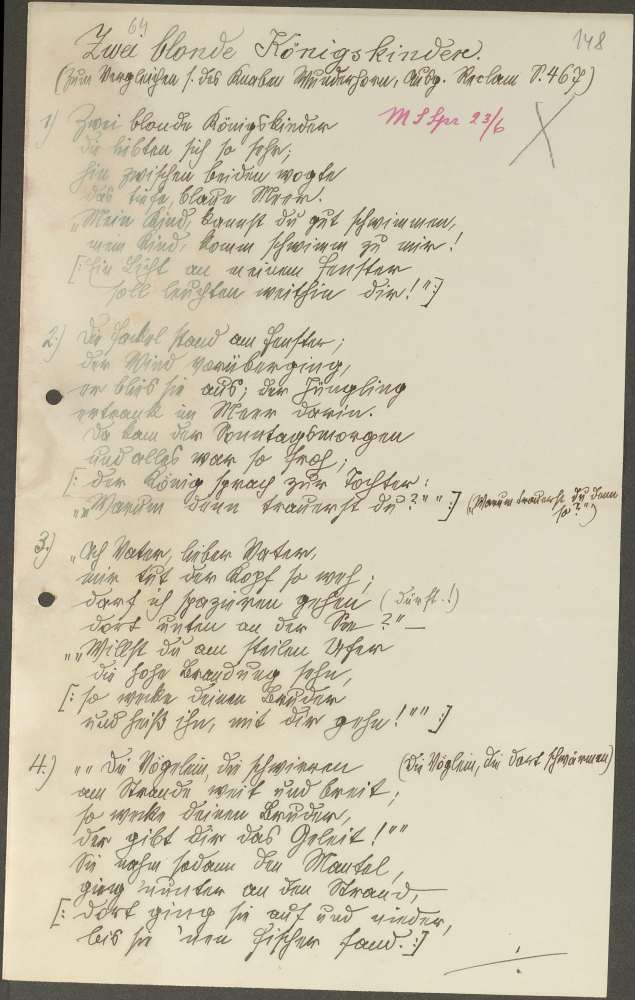 64
148
Zwei blonde Königskinder.
(Zum Vergleichen s. des Knaben Wunderhorn, Ausg. Reclam S. 467)
23/6
1) Zwei blonde Königskinder
die liebten sich so sehr;
hin zwischen beiden wogte
das tiefe, blaue Meer.
"Mein Kind, kannst du gut schwimmen,
mein Kind, komm schwimm zu mir!
[: Ein Licht an meinem Fenster
soll leuchten weithin dir!" :]
2.) Die Fackel stand am Fenster;
der Wind vorüberging,
er blies sie aus; der Jüngling
ertrank im Meer darin.
Da kam der Sonntagsmorgen
und alles war so froh;
[: der König sprach zur Tochter:
""Warum denn trauerst du?"" :] (Warum trauerst du denn
so?"")
3.) "Ach Vater, lieber Vater,
mir tut der Kopf so weh;
darf ich spazieren gehen (dürft..!)
dort unten an der See?" —
""Willst du am steilen Ufer
die hohe Brandung sehn,
[: so wecke deinen Bruder
und heiß ihn, mit dir gehn!"" :]
4.) "" Die Vögelein, die schwirren (die Vöglein, die dort schwärmen)
am Strande weit und breit;
so wecke deinen Bruder,
der gibt dir das Geleit!""
Sie nahm sodann den Mantel,
ging 'nunter an den Strand, —
[: dort ging sie auf und nieder,
bis sie 'nen Fischer fand. :]